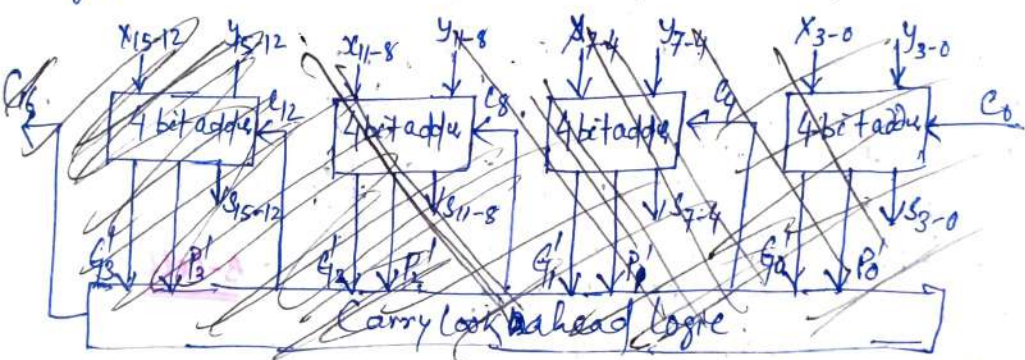 X15-12 Y15-12 X11-8 Y11-8 X7-4 Y7-4 X3-0 Y3-0
C12 C8 C4 C0
4 bit adder 4 bit adder 4 bit adder 4 bit adder
S15-12 S11-8 S7-4 S3-0
G3' P3' G2' P2' G1' G0' P0'
Carry look ahead logic.